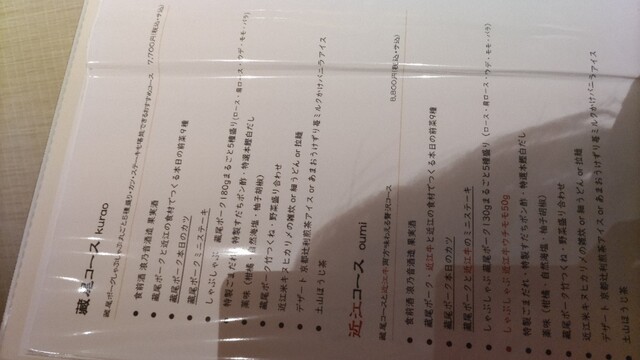 藏尾コース kurao
藏尾ポークしゃぶしゃぶ丸ごと5種盛り・カツ・ステーキも堪能できるおすすめコース 7,700円(税込・サ込)
● 食前酒 浪乃音酒造 果実酒
● 藏尾ポークと近江の食材でつくる本日の前菜9種
● 藏尾ポーク本日のカツ
● 藏尾ポークミニステーキ
● しゃぶしゃぶ 藏尾ポーク180gまるごと5種盛り(ロース・肩ロース・ウデ・モモ・バラ)
特製ごまだれ・特製すだちポン酢・特選本鰹白だし
● 薬味(柑橘・自然海塩・柚子胡椒)
● 藏尾ポーク竹つくね・野菜盛り合わせ
● 近江米キヌヒカリ〆の雑炊 or 麺うどん or 拉麺
● デザート 京都辻利煎茶アイス or あまおうけずり苺ミルクかけバニラアイス
● 土山ほうじ茶
近江コース oumi
藏尾コースと近江牛両方味わえる贅沢コース 8,800円(税込・サ込)
● 食前酒 浪乃音酒造 果実酒
● 藏尾ポーク・近江牛と近江の食材でつくる本日の前菜9種
● 藏尾ポーク本日のカツ
● 藏尾ポークと近江牛のミニステーキ
● しゃぶしゃぶ 藏尾ポーク130gまるごと5種盛り(ロース・肩ロース・ウデ・モモ・バラ)
● しゃぶしゃぶ 近江牛ウチモモ50g
● 特製ごまだれ・特製すだちポン酢・特選本鰹白だし
● 薬味(柑橘・自然海塩・柚子胡椒)
藏尾ポーク竹つくね・野菜盛り合わせ
● 近江米キヌヒカリ〆の雑炊 or 麺うどん or 拉麺
● デザート 京都辻利煎茶アイス or あまおうけずり苺ミルクかけバニラアイス
● 土山ほうじ茶